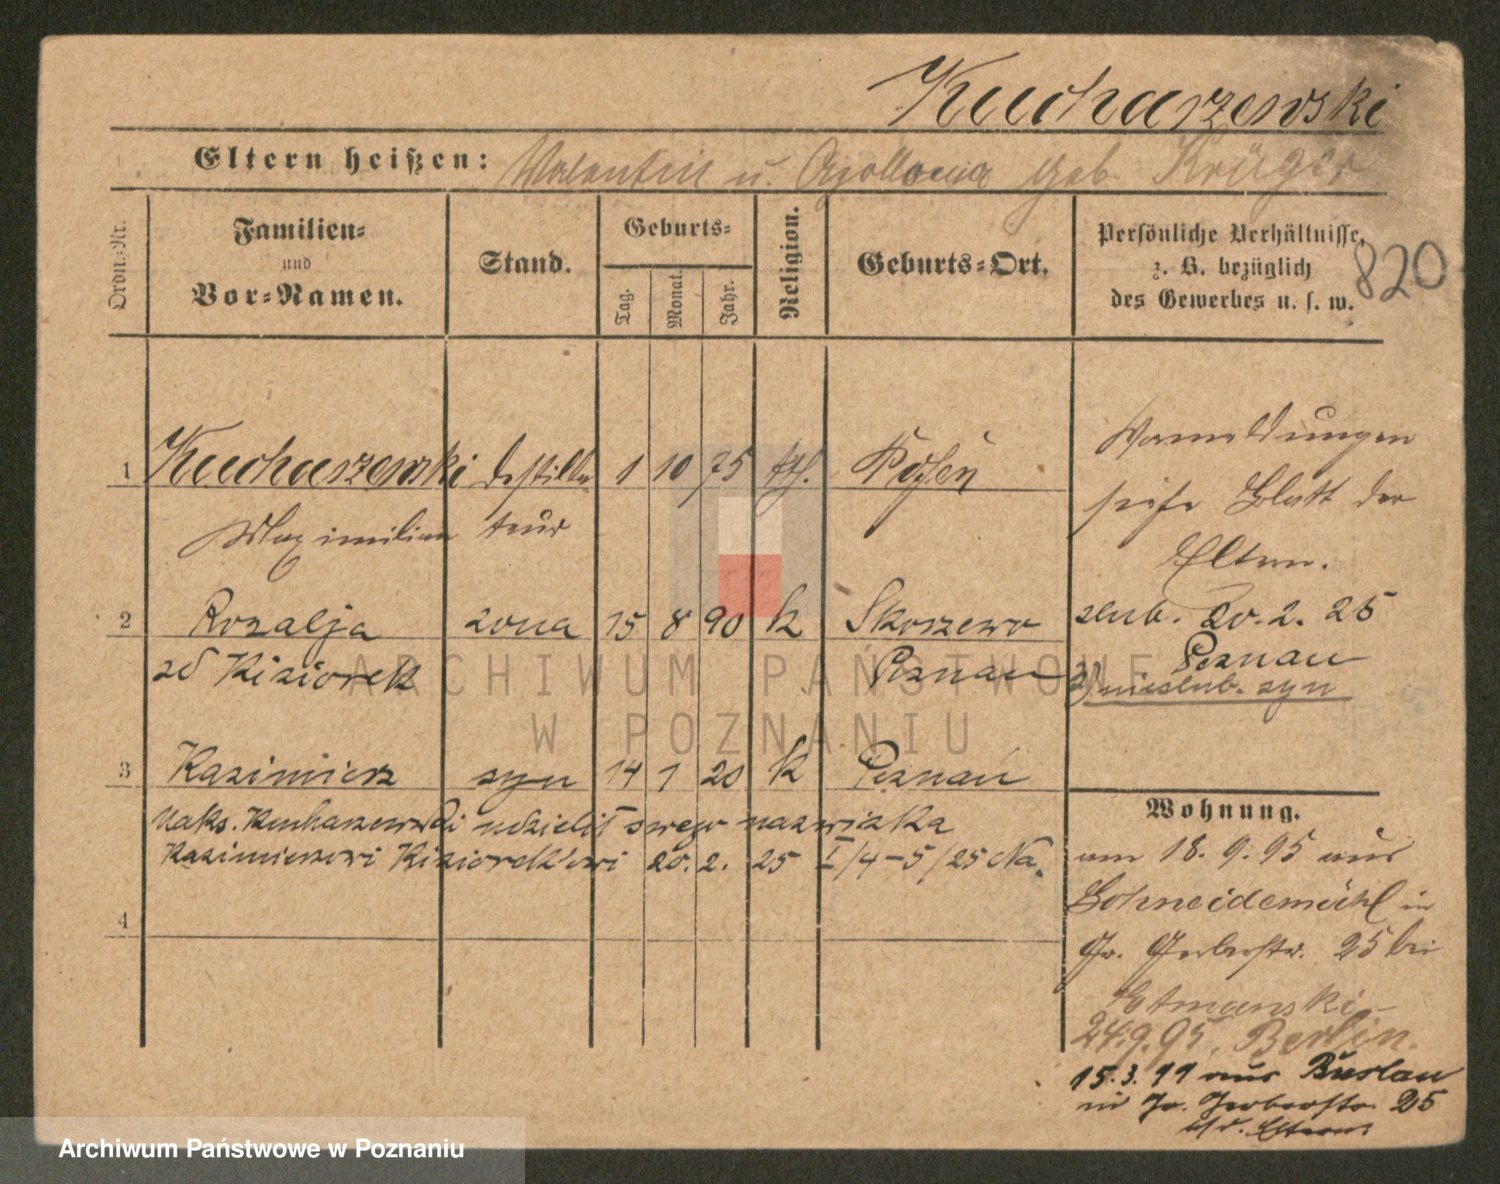 Kucharzewski
Eltern heißen: Valentin u. Apollonia geb. Krüger
Ordn.-Nr.
Familien-
und
Vor-Namen.
Stand.
Geburts-
Tag.
Monat.
Jahr.
Religion.
Geburts-Ort.
Persönliche Verhältnisse,
z. B. bezüglich
des Gewerbes u. s. w.
820
1 Kucharzewski Destilla 1 10 75 kth. Posen
Maximilian teur
Vormeldungen
siehe Blatt der
Eltern.
2 Rozalja żona 15 8 90 k Skorzewo
zd Kiziorek Poznań
ślub. 20. 2. 25
Poznań
3) nieślub. syn
3 Kazimierz syn 14 1 20 k Poznań
Maks. Kucharzewski udzielił swego nazwiska
Kazimierzowi Kiziorek'owi 20. 2. 25 I/4-5/25 Na.
4
Wohnung.
am 18. 9. 95 aus
Schneidemühl in
Gr. Gerberstr. 25 bei
Etmanski
24.9.95. Berlin.
15.3.99 aus Breslau
in Gr. Gerberstr. 25
b/d. Eltern.
ARCHIWUM PAŃSTWOWE
W POZNANIU
Archiwum Państwowe w Poznaniu